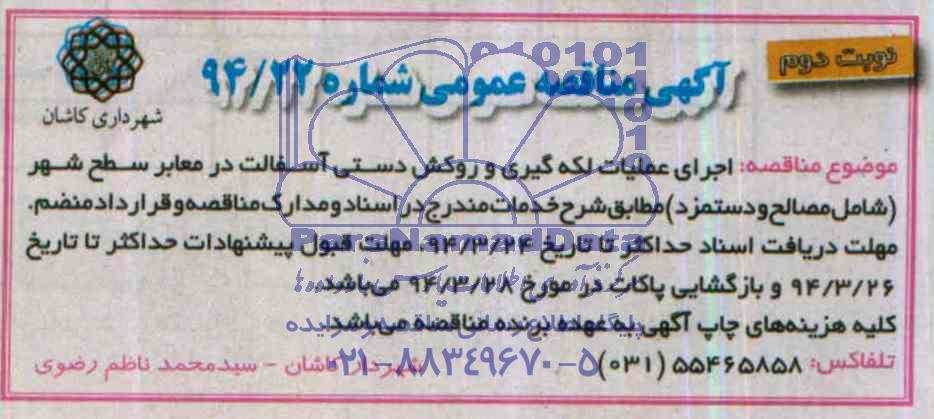 نوبت دوم
آگهی مناقصه عمومی شماره ۹۴/۲۲
شهرداری کاشان
موضوع مناقصه: اجرای عملیات لکه گیری و روکش دستی آسفالت در معابر سطح شهر
(شامل مصالح و دستمزد) مطابق شرح خدمات مندرج در اسناد و مدارک مناقصه و قرارداد منضم.
مهلت دریافت اسناد حداکثر تا تاریخ ۹۴/۳/۲۴، مهلت قبول پیشنهادات حداکثر تا تاریخ
۹۴/۳/۲۶ و بازگشایی پاکات در مورخ ۹۴/۳/۲۸ می‌باشد.
کلیه هزینه‌های چاپ آگهی به عهده برنده مناقصه می‌باشد.
تلفاکس: ۵۵۴۶۵۸۵۸ (۰۳۱)
شهردار کاشان - سیدمحمد ناظم رضوی
ParsNamadData
۰۲۱-۸۸۳۴۹۶۷۰-۵